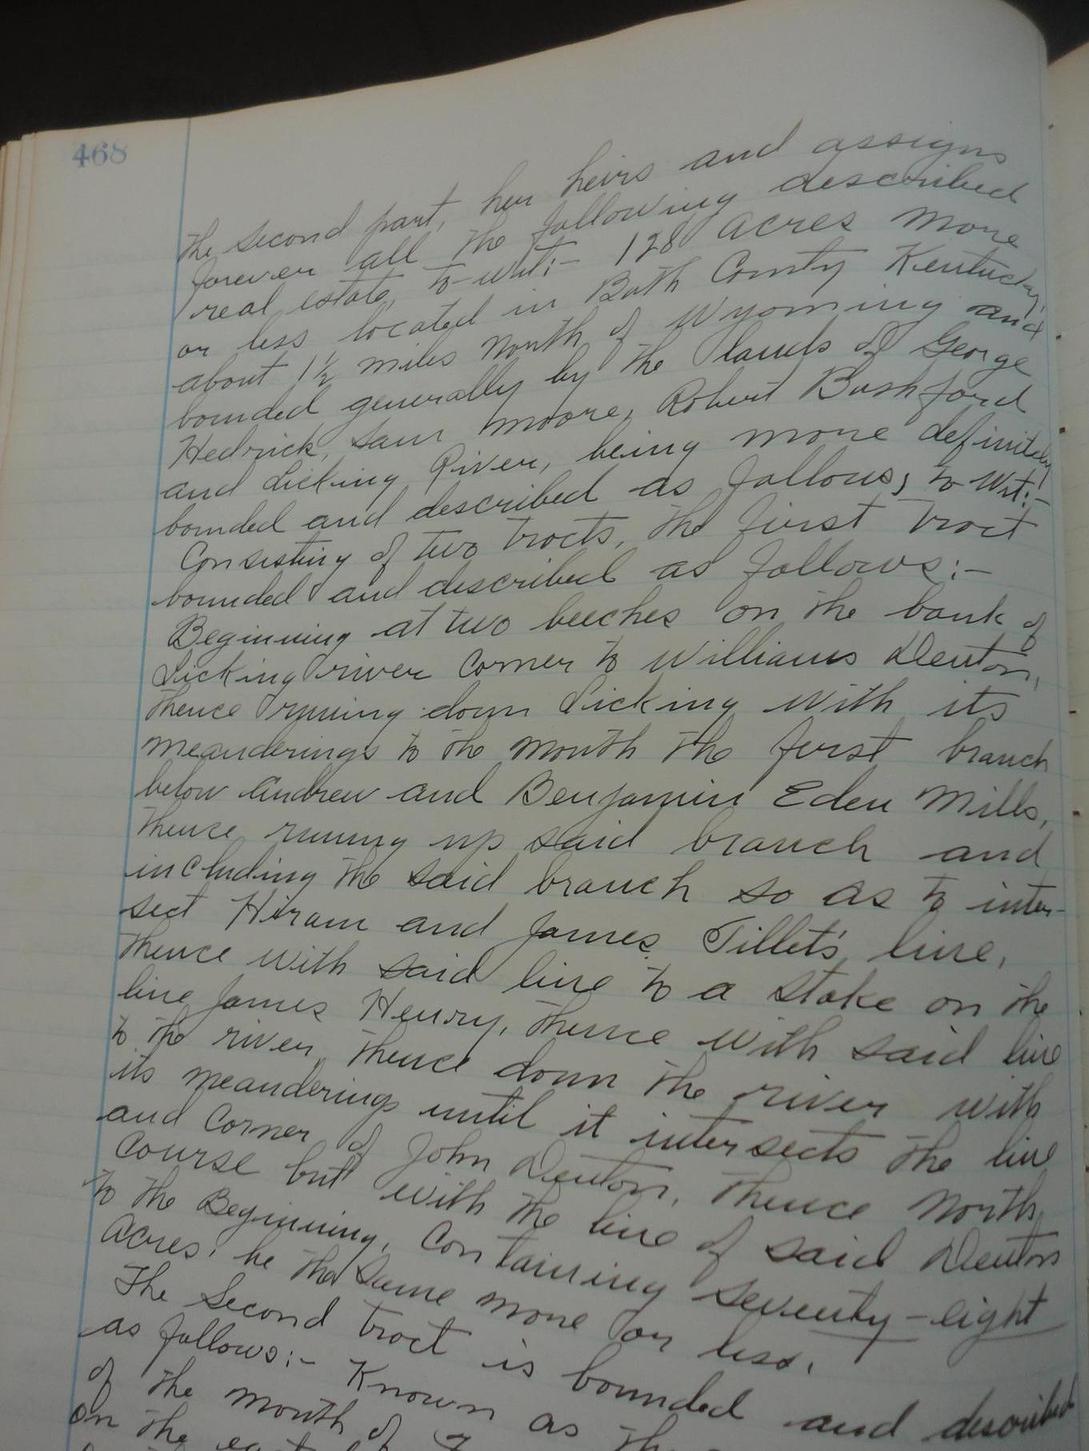 468
the second part, her heirs and assigns
forever all the following described
real estate, to-wit:- 128 acres more
or less located in Bath County Kentucky,
about 1½ miles North of Wyoming and
bounded generally by the lands of George
Hedrick, Sam Moore, Robert Bashford
and Licking River, being more definitely
bounded and described as follows, to-wit:-
Consisting of two tracts, the first tract
bounded and described as follows:-
Beginning at two beeches on the bank of
Licking river corner to Williams Denton,
thence running down Licking with its
meanderings to the mouth the first branch
below Andrew and Benjamin Eden Mills,
thence running up said branch and
including the said branch so as to inter-
sect Hiram and James Tillet's line,
thence with said line to a stake on the
line James Henry, thence with said line
to the river, thence down the river with
its meanderings until it intersects the line
and corner of John Denton, thence North
course but with the line of said Denton
to the Beginning, Containing seventy-eight
acres, be the same more or less.
The second tract is bounded and described
as follows:- Known as the
of the mouth of
on the east